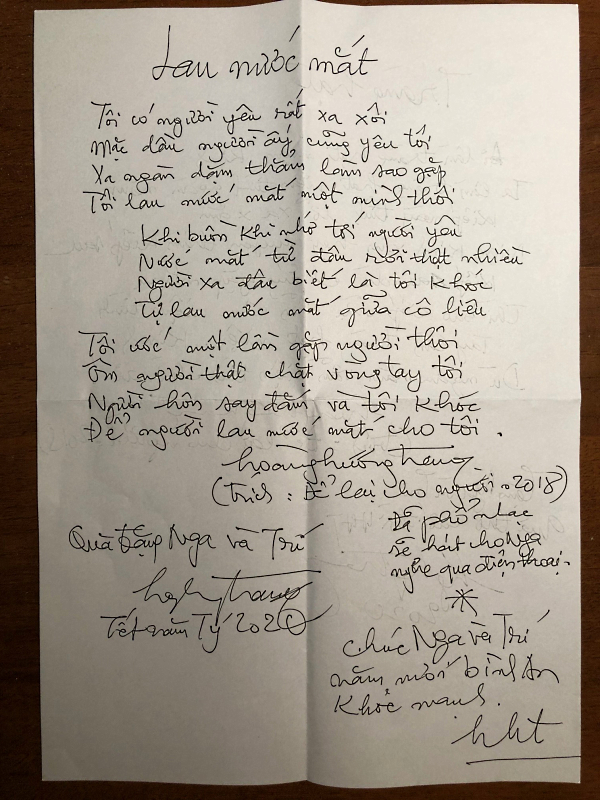 Lau nước mắt
Tôi có người yêu rất xa xôi
Mặc dầu người ấy cũng yêu tôi
Xa ngàn dặm thẳm làm sao gặp
Tôi lau nước mắt một mình thôi
Khi buồn khi nhớ tới người yêu
Nước mắt từ đâu rơi thật nhiều
Người xa đâu biết là tôi khóc
Tự lau nước mắt giữa cô liêu
Tôi ước một lần gặp người thôi
Ôm người thật chặt vòng tay tôi
Người hôn say đắm và tôi khóc
Để người lau nước mắt cho tôi.
hoànghươngtrang
(Trích: Để lại cho người. 2018)
Đã phổ nhạc
Quà tặng Nga và Trí
sẽ hát cho Nga
nghe qua điện thoại.
Tết năm Tý 2020
chúc Nga và Trí
năm mới bình An
Khỏe mạnh.
hht